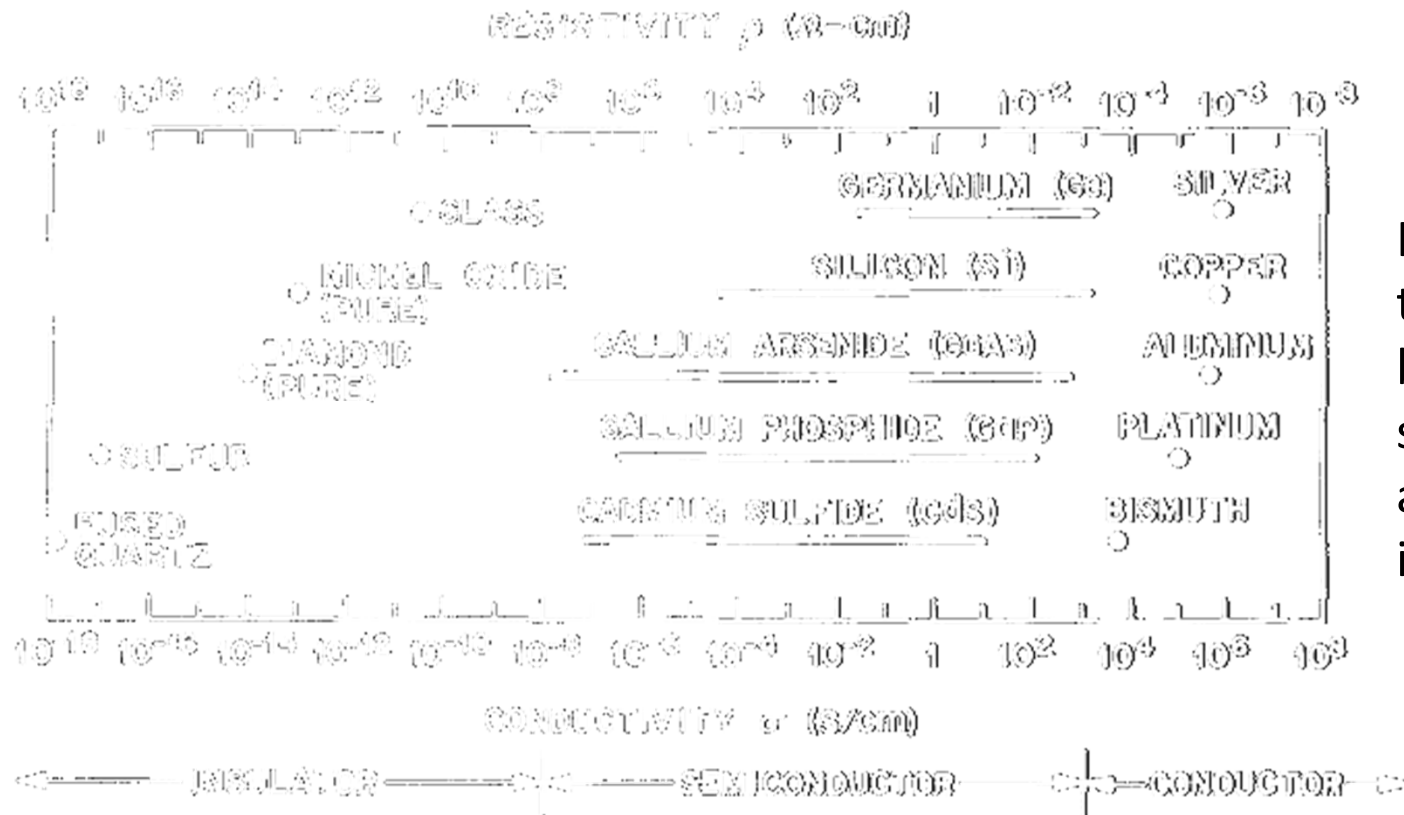 RESISTIVITY ρ (Ω-cm)
10¹⁸ 10¹⁶ 10¹⁴ 10¹² 10¹⁰ 10⁸ 10⁶ 10⁴ 10² 1 10⁻² 10⁻⁴ 10⁻⁶ 10⁻⁸
GERMANIUM (Ge) SILVER
GLASS
SILICON (Si) COPPER
NICKEL OXIDE
(PURE)
GALLIUM ARSENIDE (GaAs) ALUMINUM
DIAMOND
(PURE)
GALLIUM PHOSPHIDE (GaP) PLATINUM
SULFUR
CADMIUM SULFIDE (CdS) BISMUTH
FUSED
QUARTZ
10⁻¹⁸ 10⁻¹⁶ 10⁻¹⁴ 10⁻¹² 10⁻¹⁰ 10⁻⁸ 10⁻⁶ 10⁻⁴ 10⁻² 1 10² 10⁴ 10⁶ 10⁸
CONDUCTIVITY σ (S/cm)
INSULATOR SEMICONDUCTOR CONDUCTOR